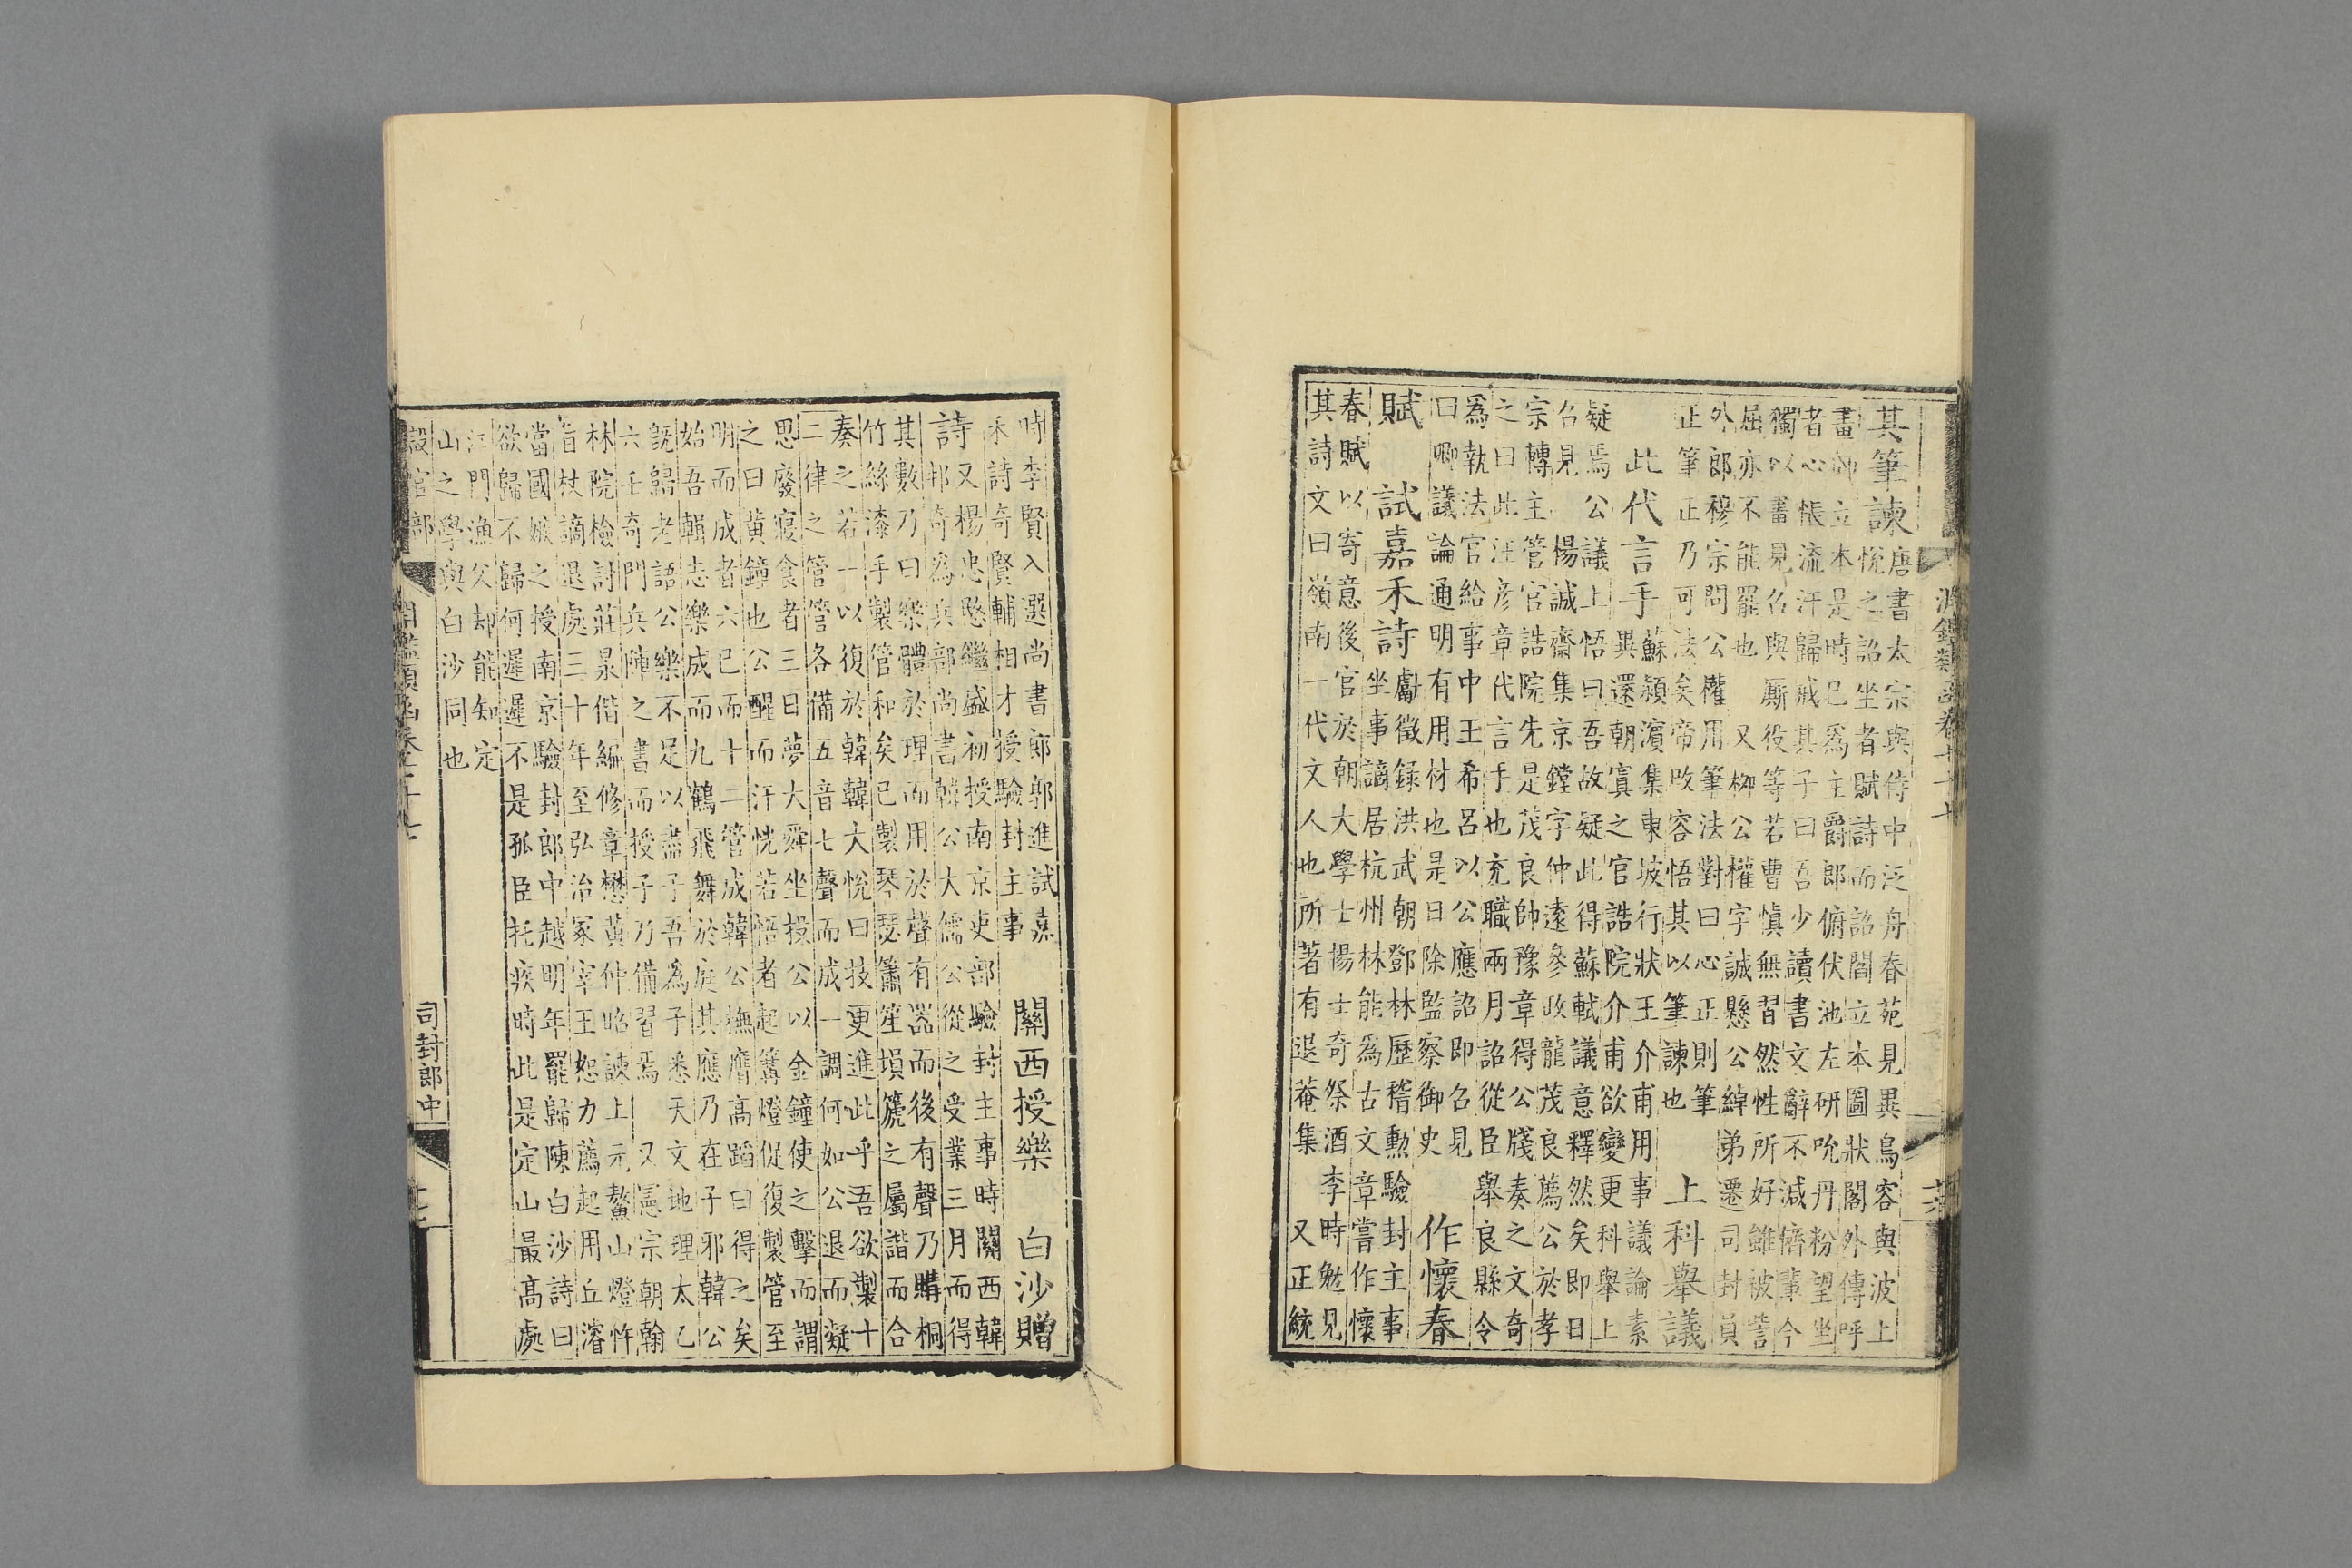 淵鑑類函卷七十七
十六
其筆諫
唐書太宗與侍中泛舟春苑見異鳥容與波上
悅之詔坐者賦詩而詔閻立本圖狀閣外傳呼
畫師立本是時已爲主爵郎俯伏池左研吮丹粉望坐
者心悵流汗歸戒其子曰吾少讀書文辭不減儕輩今
獨以畫見名與厮役等若曹慎無習然性所好雖被訾
屈亦不能罷也 又柳公權字誠懸公綽弟遷司封員
外郎穆宗問公權用筆法對曰心正則筆
正筆正乃可法矣帝改容悟其以筆諫也
上科舉議
此代言手
蘇潁濱集東坡行狀王介甫用事議論素
異還朝寘之官誥院介甫欲變更科舉上
疑焉 公議上悟曰吾故疑此得蘇軾議意釋然矣即日
召見 楊誠齋集京鏜字仲遠參政龍茂良薦公於孝
宗轉主管官誥院先是茂良帥豫章得公牋奏之文奇
之曰此汪彥章代言手也充職兩月詔從臣舉良縣令
爲執法官給事中王希呂以公應詔即召見
曰卿議論通明有用材也是日除監察御史
作懷春
賦 試嘉禾詩
獻徵錄洪武朝鄧林歷稽勳驗封主事
坐事謫居杭州林能爲古文章嘗作懷
春賦以寄意後官於朝大學士楊士奇祭酒李時勉見
其詩文曰嶺南一代文人也所著有退菴集 又正統
時李賢入選尚書郎郭進試嘉
禾詩奇賢輔相才授驗封主事
關西授樂 白沙贈
詩
又楊忠愍繼盛初授南京吏部驗封主事時關西韓
邦奇爲兵部尚書韓公大儒公從之受業三月而得
其數乃曰樂體於理而用於聲有器而後有聲乃購桐
竹絲漆手製管和矣已製琴瑟簫笙塤篪之屬諧而合
奏之若一以復於韓韓大悅曰技更進此乎吾欲製十
二律之管管各備五音七聲而成一調何如公退而凝
思廢寢食者三日夢大舜坐授公以金鐘使之擊而謂
之曰黃鐘也公醒而汗恍若悟者起篝燈促復製管至
明而成者六已而十二管成韓公撫膺高蹈曰得之矣
始吾輯志樂成而九鶴飛舞於庭其應乃在子邪韓公
旣歸老語公樂不足以盡子吾爲子悉天文地理太乙
六壬奇門兵陣之書而授子乃備習焉 又憲宗朝翰
林院檢討莊㫤偕編修章懋黃仲昭諫上元鰲山燈忤
旨杖謫退處三十年至弘治冢宰王恕力薦起用丘濬
當國嫉之授南京驗封郎中越明年罷歸陳白沙詩曰
欲歸不歸何遲遲不是孤臣托疾時此是定山最高處
江門漁父却能知定
山之學與白沙同也
設官部
淵鑑類函卷七十七
司封郎中
十七